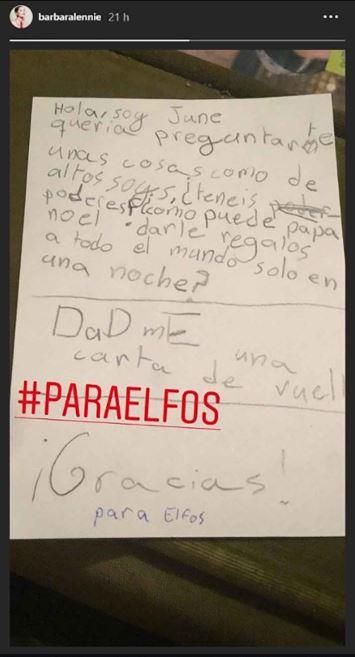 barbaralennie 21 h
Hola, soy June
queria preguntarte
unas cosas como de
altos soys, ¿teneis
poderes? ¿como puede papa
noel darle regalos
a todo el mundo solo en
una noche?
DaDmE una
carta de vuel
#PARAELFOS
¡Gracias!
para Elfos